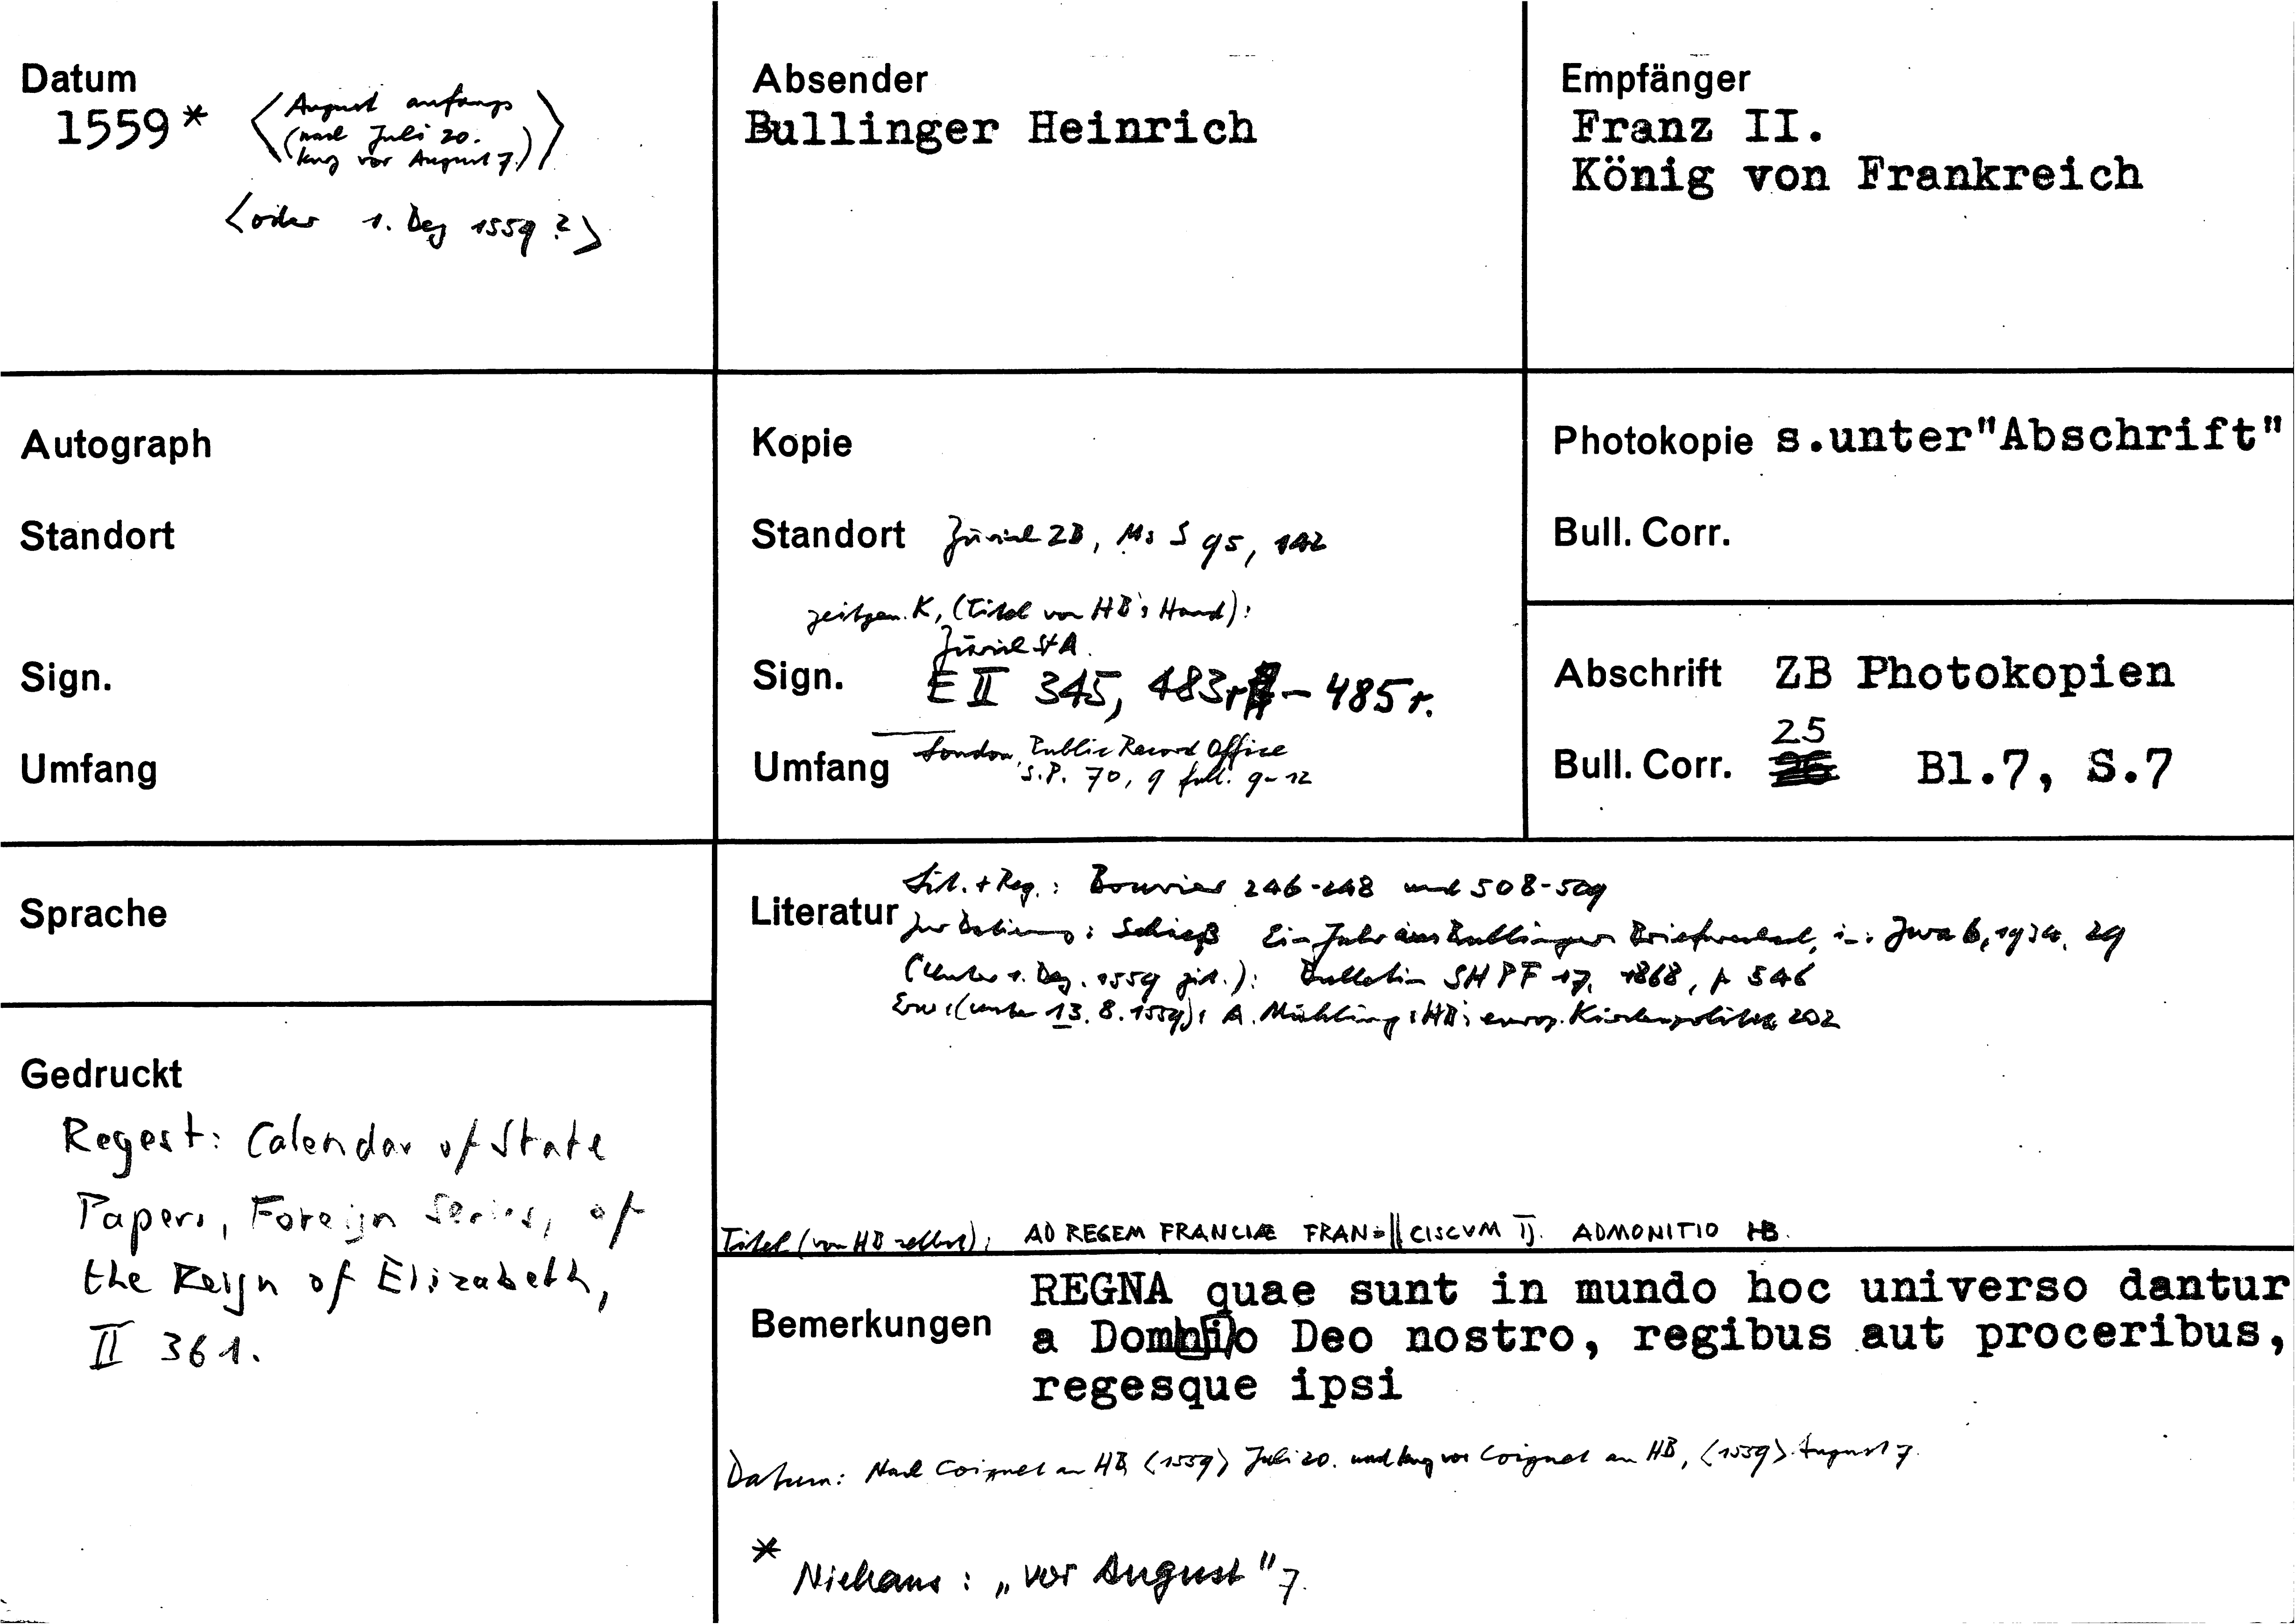 Datum
1559* <August anfangs
(nach Juli 20.
kurz vor August 7.)>
<oder 1. Dez 1559?>
Absender
Bullinger Heinrich
Empfänger
Franz II.
König von Frankreich
Autograph
Standort
Sign.
Umfang
Kopie
Standort Zürich ZB, Ms S 95, 142
zeitgen. K, (Titel von HB's Hand):
Zürich StA.
Sign. E II 345, 483r - 485r.
Umfang London, Public Record Office
S.P. 70, 9 foll. 9-12
Photokopie s.unter"Abschrift"
Bull. Corr.
Abschrift ZB Photokopien
Bull. Corr. 25 Bl.7, S.7
Sprache
Gedruckt
Regest: Calendar of State
Papers, Foreign Series, of
the Reign of Elizabeth,
II 361.
Lit. + Reg.: Bouvier 246-248 und 508-509
Literatur Zur Datierung: Schieß Ein Jahr aus Bullingers Briefwechsel, in: Zwa 6, 1934, 29
(Unter 1. Dez. 1559 zit.): Bulletin SHPF 17, 1868, p 546
Erw: (unter 13.8.1559): A. Mühling: HB's europ. Kirchenpolitik 202
Titel (von HB selbst): AD REGEM FRANCIÆ FRAN=||CISCVM IJ. ADMONITIO HB.
Bemerkungen
REGNA quae sunt in mundo hoc universo dantur
a Domino Deo nostro, regibus aut proceribus,
regesque ipsi
Datum: Nach Coignet an HB, <1559> Juli 20. und kurz vor Coignet an HB, <1559> August 7.
* Niehans: „vor August" 7.